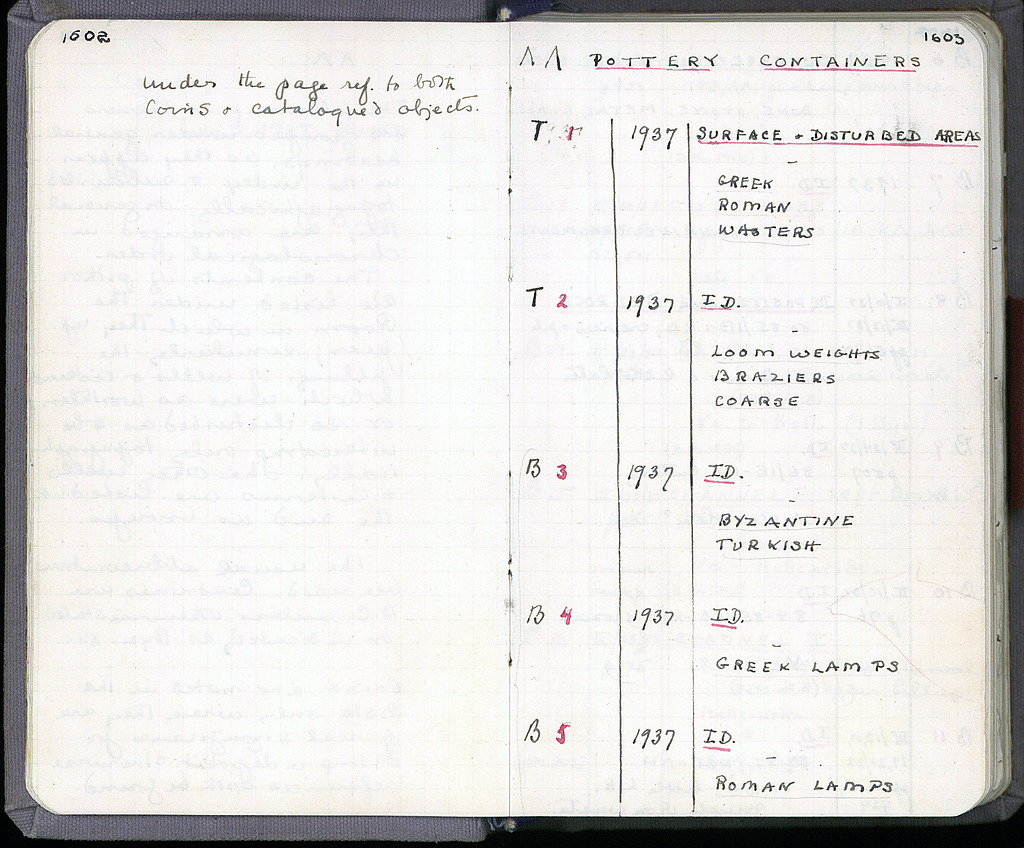 1602
under the page ref. to both
Coins & catalogued objects.
1603
ΛΛ POTTERY CONTAINERS
T 1 1937 SURFACE & DISTURBED AREAS
-
GREEK
ROMAN
WASTERS
T 2 1937 ID.
-
LOOM WEIGHTS
BRAZIERS
COARSE
B 3 1937 ID.
-
BYZANTINE
TURKISH
B 4 1937 ID.
-
GREEK LAMPS
B 5 1937 ID.
-
ROMAN LAMPS